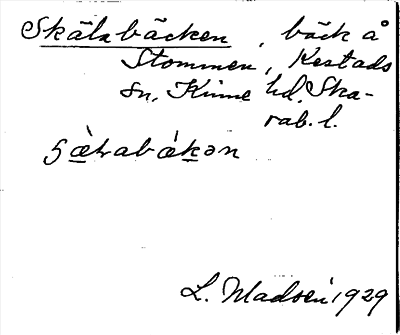 Skälabäcken, bäck å
Stommen, Kestads
sn, Kinne hd, Ska-
rab. l.
L. Madsén 1929